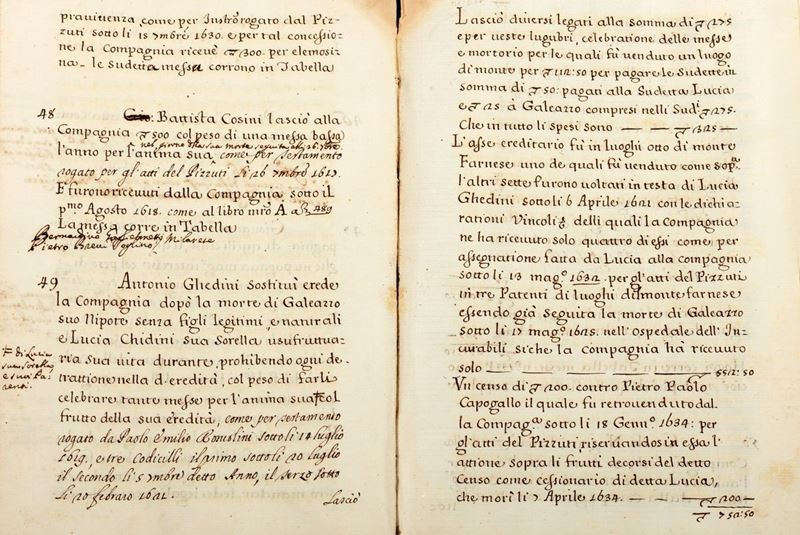 prauiuenza, come per Instrõ rogaro dal Piz-
zuti sotto li 15 7mbre 1630. e per tal concessio-
ne la Compagnia riceuè 300. per elemosi
na. le sudetta messa corrono in Tabella
48
Gio: Battista Cosini lasciò alla
Compagnia 500 col peso di una messa bassa
l'anno per l'anima sua, come per testamento
rogato per gl'atti del Pizzuti li 26 7mbre 1617.
E furono riceuuti dalla Compagnia sotto il
pmo Agosto 1618. come al libro mrõ A a 489
La messa corre in Tabella
Bernardino
Pietro
49
Antonio Ghedini Sostituì erede
la Compagnia dopò la morte di Galeazzo
suo Nipote senza figli legitimi, e naturali
e Lucia Chidini sua Sorella usufruttua-
ria sua vita durante, prohibendo ogni de-
trattione nella d. eredità, col peso di farli
celebrare tante messe per l'anima sua col
frutto della sua eredità, come per testamento
rogato da Paolo Emilio Bomolini sotto li 10 luglio
1619, e tre Codicilli il primo sotto li 20 luglio
il secondo li 5 7mbre detto Anno, il terzo sotto
li 20 febraro 1621.
di Lucia
sua Sorella
e sua Pa-
renti.
Lasciò
Lasciò diuersi legati alla somma di 275
e per ueste lugubri, celebratione delle messe
e mortorio per le quali fù venduto un luogo
di monte per 112:50 per pagare le Sudette in
somma di 50: pagati alla Sudetta Lucia
e 25 à Galeazzo compresi nelli Sud. 275.
Che in tutto li spesi sono — — 325 —
L'asse ereditario fù in luoghi otto di monte
Farnese uno de quali fù venduto come sopa.
l'altri sette furono voltati in testa di Lucia
Ghedini sotto li 6 Aprile 1621 con le dichia-
rationi Vincoli delli quali la Compagnia
ne ha riceuuto solo quattro di essi come per
assegnatione fatta da Lucia alla compagnia
sotto li 13 mago. 1632. per gl'atti del Pizzuti
in tre Patenti di luoghi di monte farnese
essendo già seguita la morte di Galeazzo
sotto li 17 mago. 1625. nell'ospedale dell'In-
curabili si che la compagnia hà riceuuto
solo — 552:50
Vn censo di 200. contro Pietro Paolo
Capogallo il quale fu retrouenduto dal.
la Compaga. sotto li 18 Gennro. 1634: per
gl'atti del Pizzuti, riseruandosi in essa l'
attione sopra li frutti decorsi del detto
Censo come cessionario di detta Lucia,
che morì li 7 Aprile 1634. — — 200 —
752:50